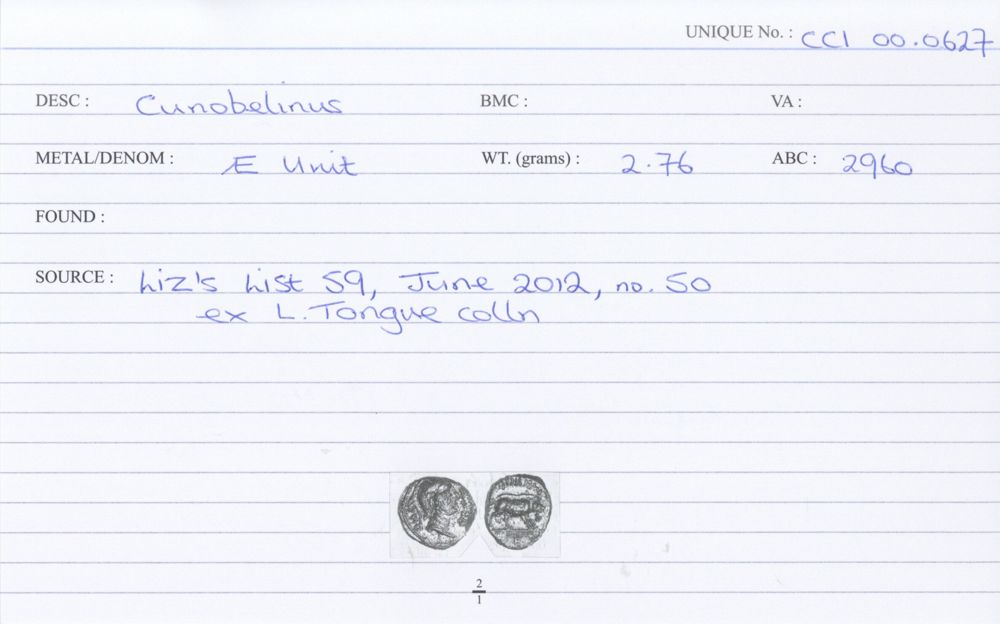 UNIQUE No. : CCI 00.0627
DESC : Cunobelinus BMC : VA :
METAL/DENOM : Æ Unit WT. (grams) : 2.76 ABC : 2960
FOUND :
SOURCE : Liz's List 59, June 2012, no. 50
ex L. Tongue colln
2
1